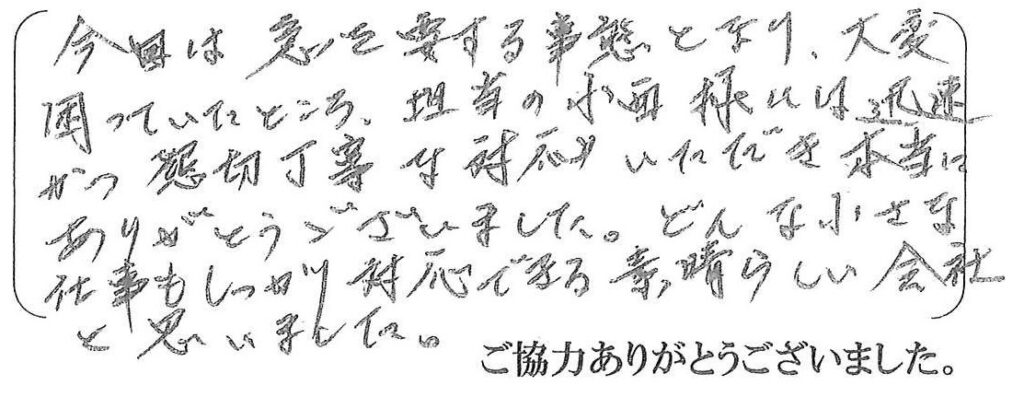 今回は急を要する事態となり、大変
困っていたところ、担当の小西様には迅速
かつ懇切丁寧な対応いただき本当に
ありがとうございました。どんな小さな
仕事もしっかり対応できる素晴らしい会社
と思いました。
ご協力ありがとうございました。